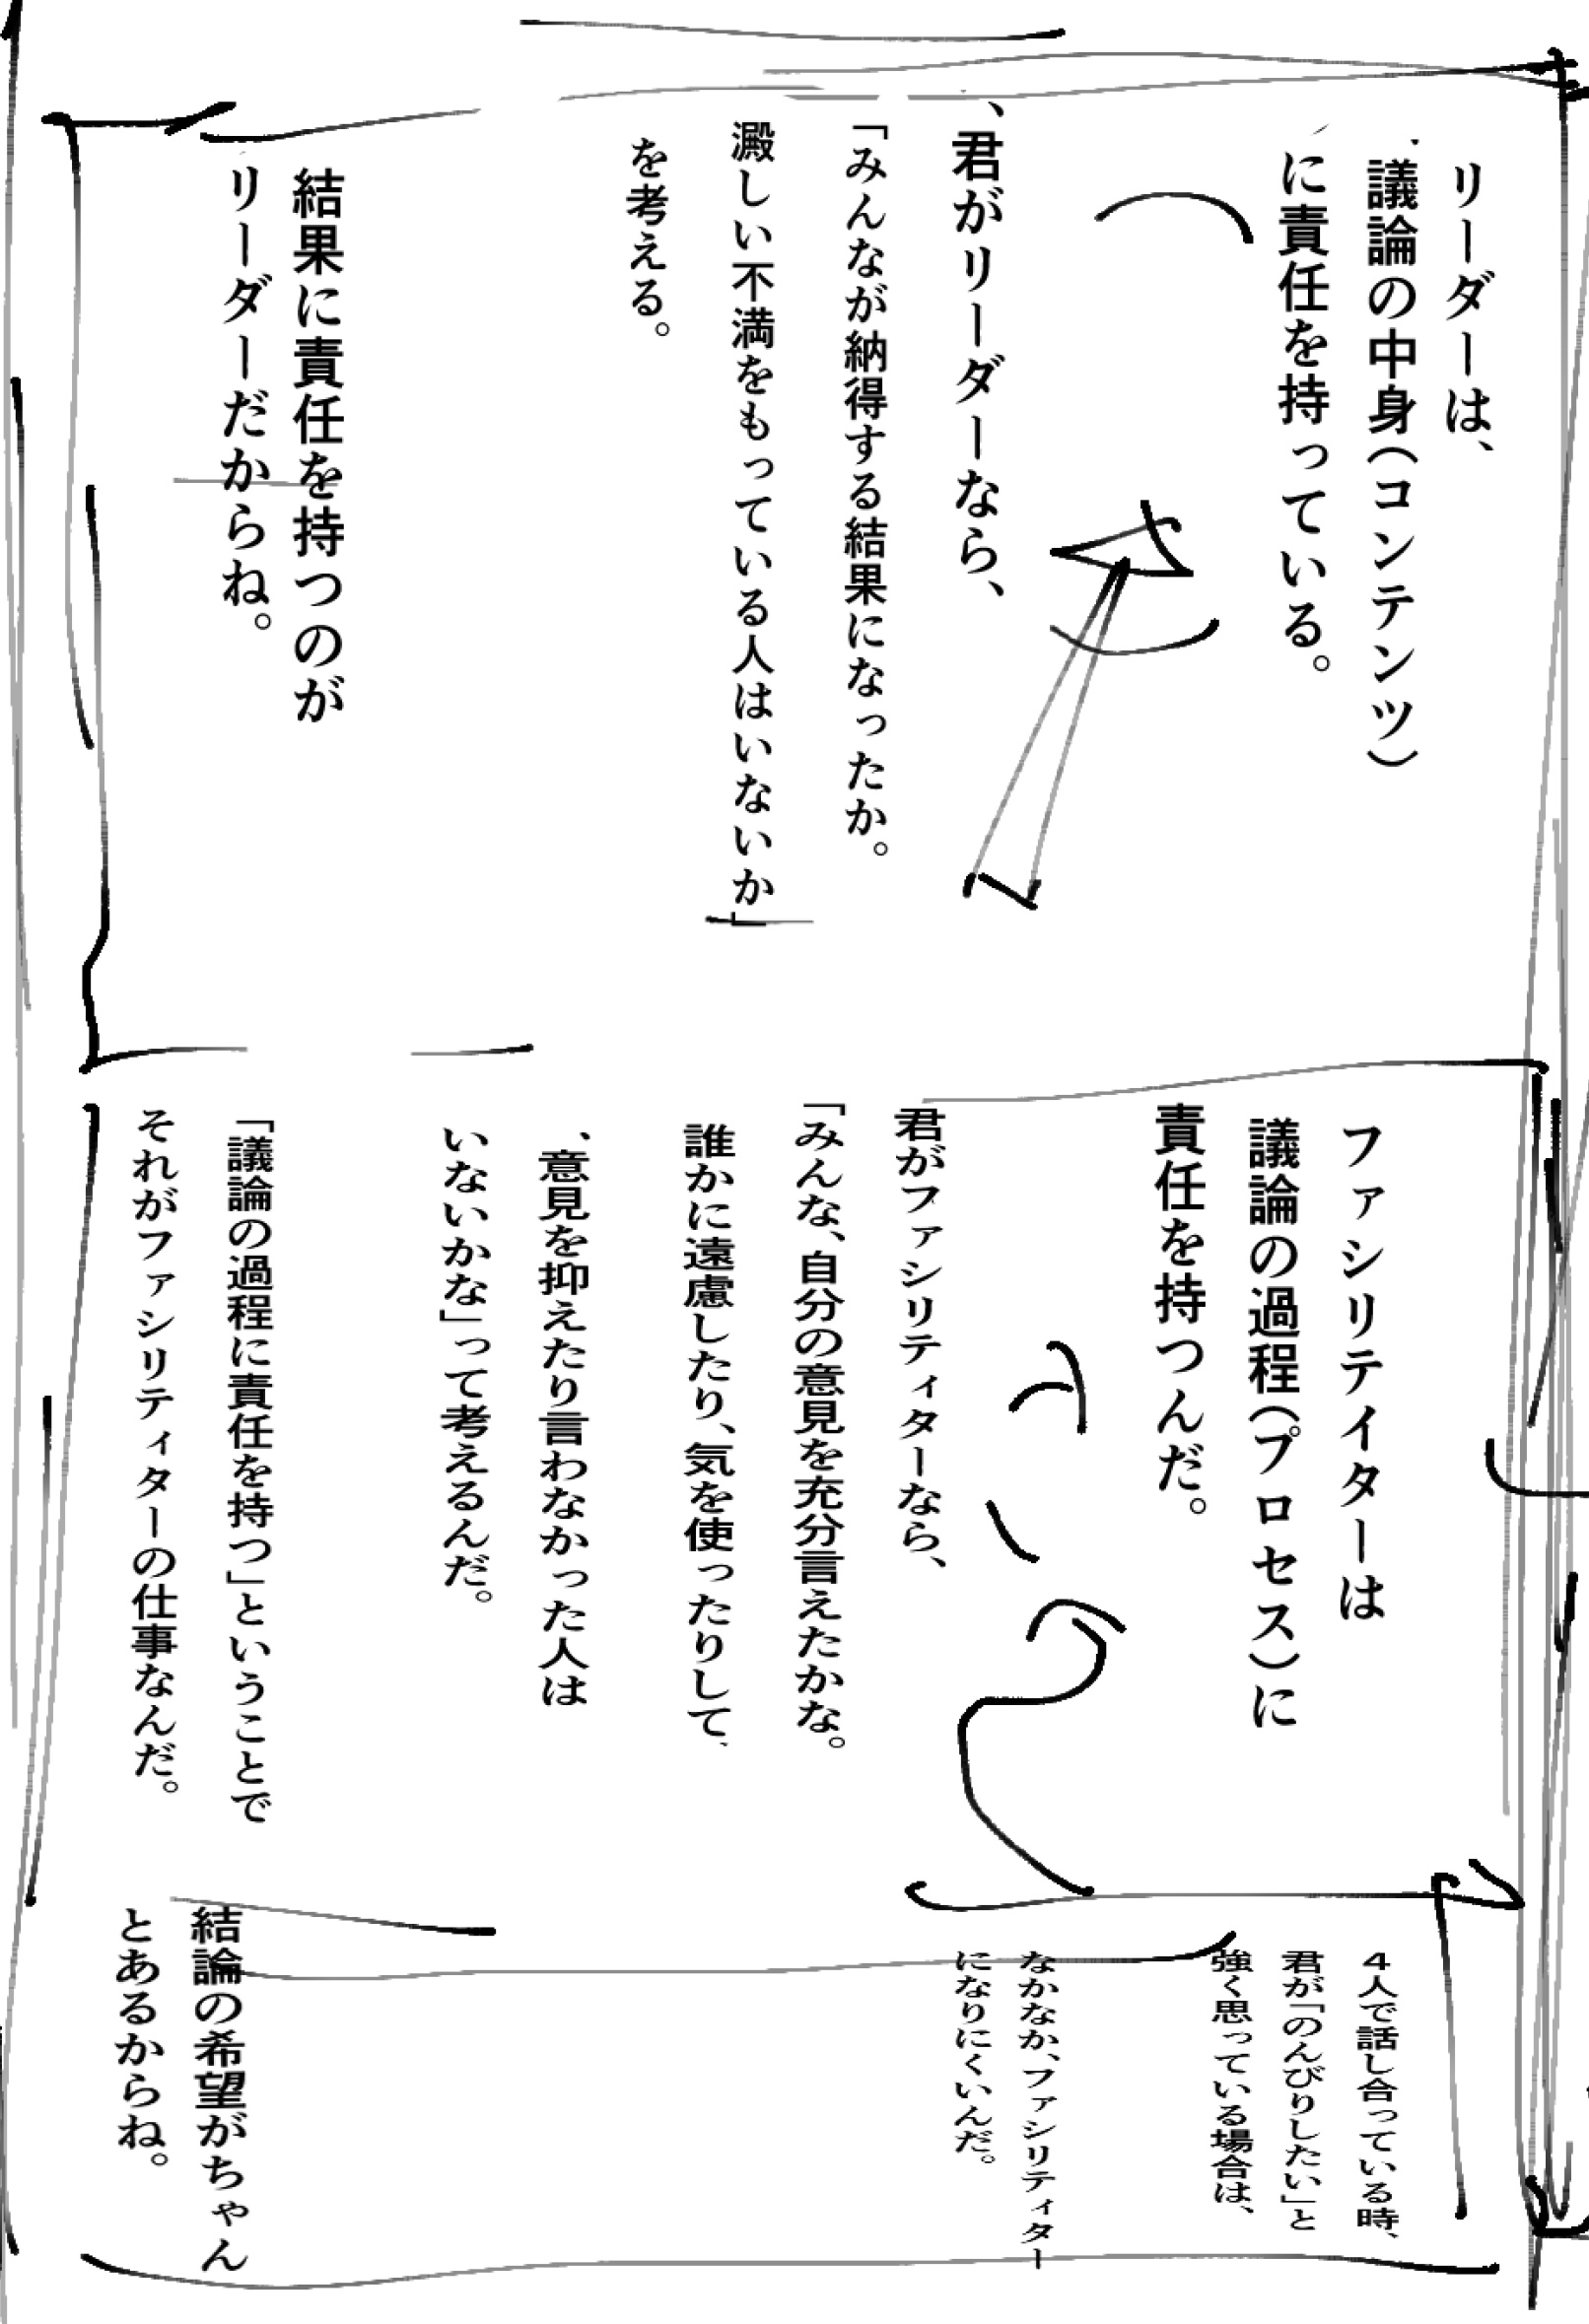 リーダーは、
議論の中身(コンテンツ)
に責任を持っている。
、君がリーダーなら、
「みんなが納得する結果になったか。
澱しい不満をもっている人はいないか」
を考える。
結果に責任を持つのが
リーダーだからね。
ファシリテイターは
議論の過程(プロセス)に
責任を持つんだ。
君がファシリティターなら、
「みんな、自分の意見を充分言えたかな。
誰かに遠慮したり、気を使ったりして、
、意見を抑えたり言わなかった人は
いないかな」って考えるんだ。
「議論の過程に責任を持つ」ということで
それがファシリティターの仕事なんだ。
4人で話し合っている時、
君が「のんびりしたい」と
強く思っている場合は、
なかなか、ファシリティター
になりにくいんだ。
結論の希望がちゃん
とあるからね。